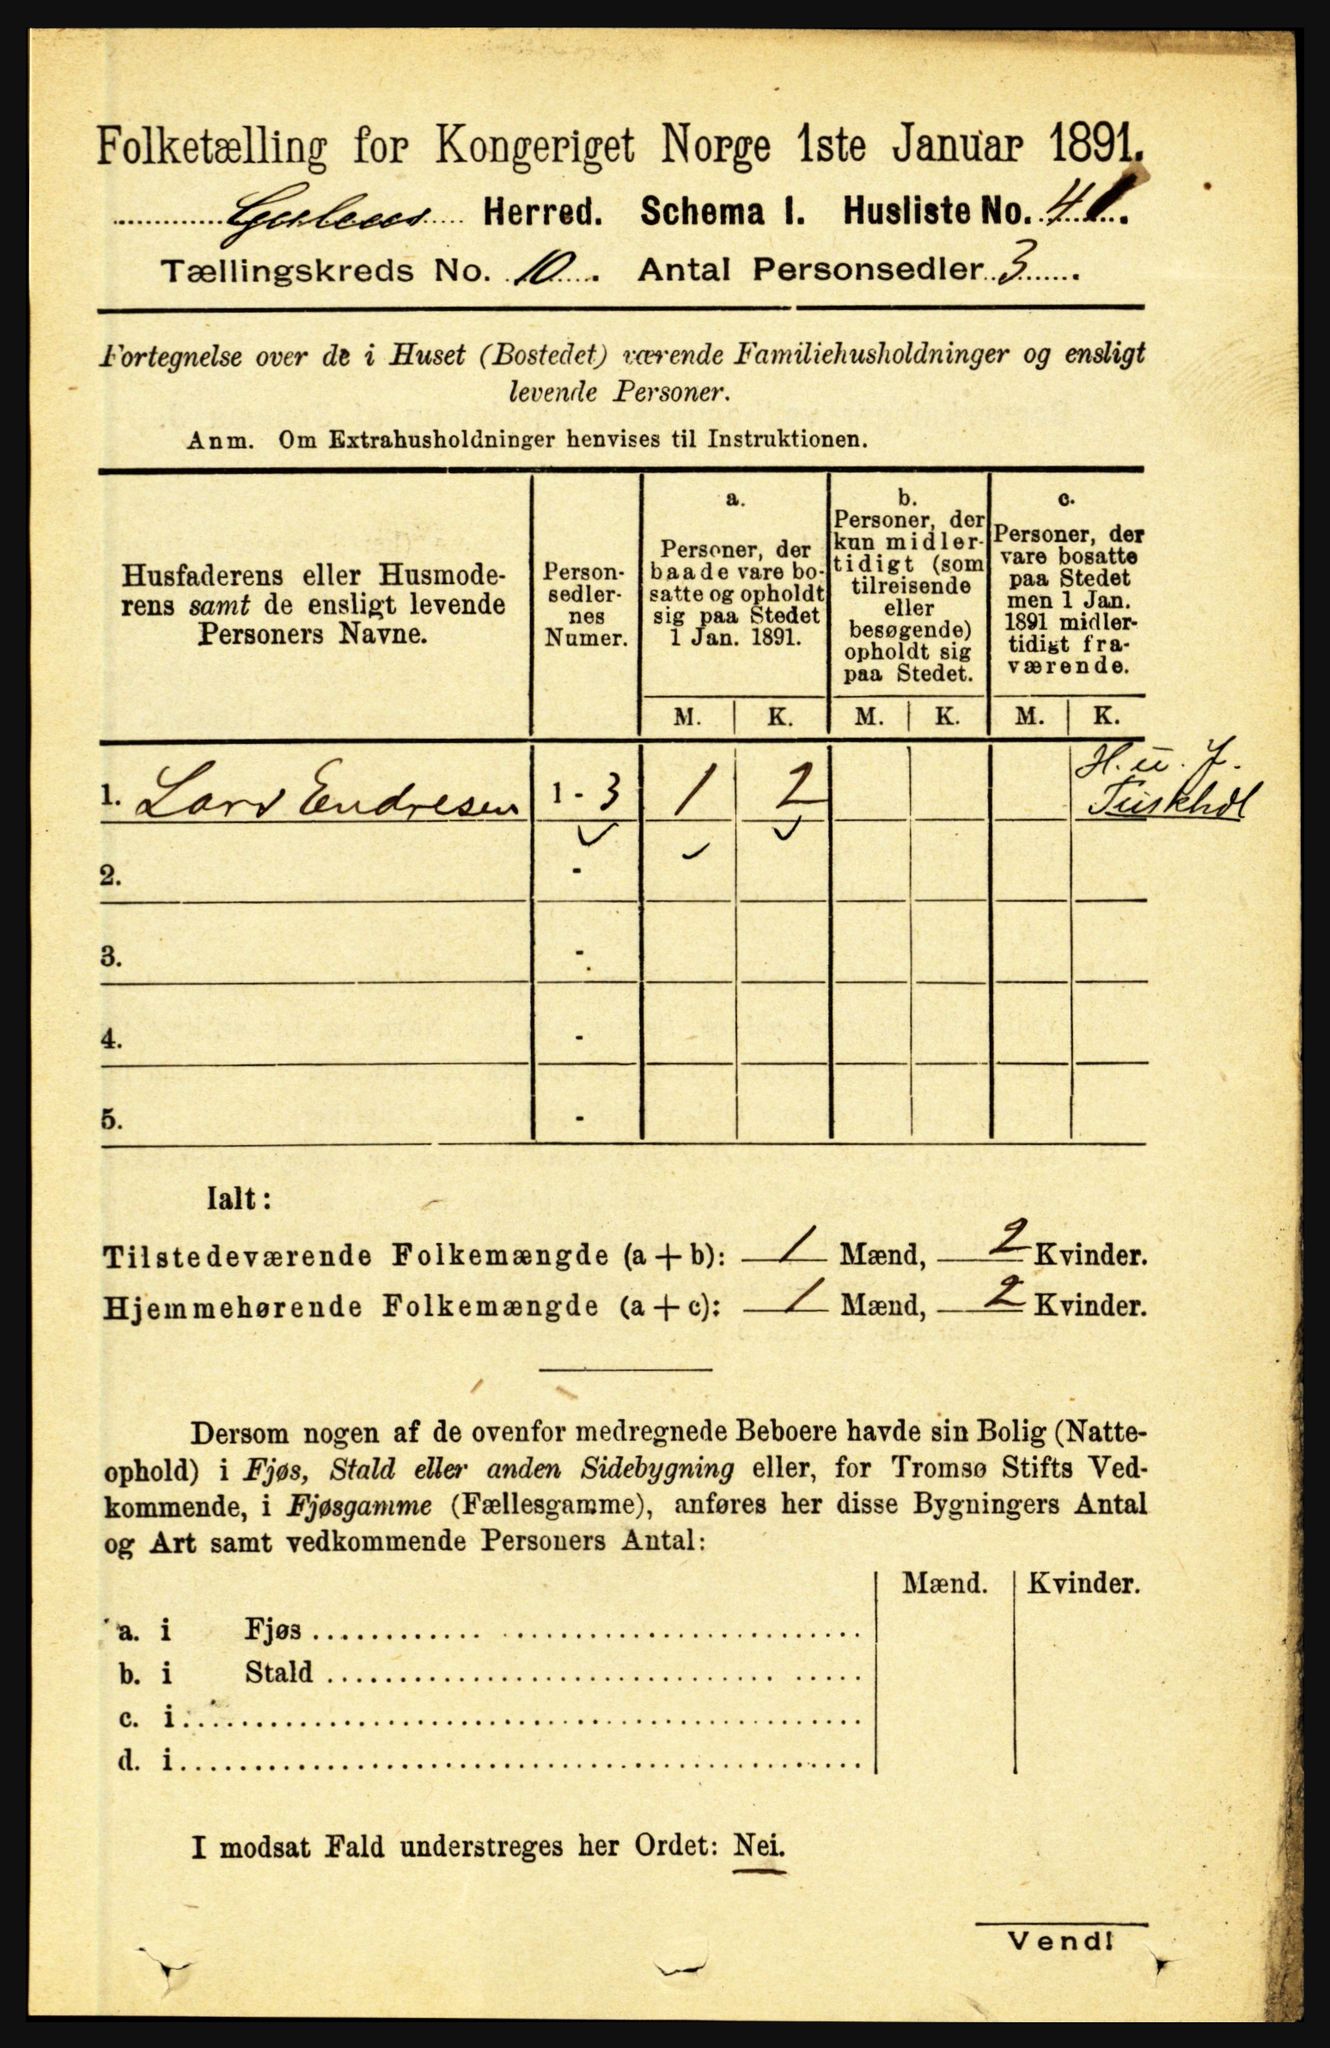 Folketælling for Kongeriget Norge 1ste Januar 1891.
Gulens Herred. Schema I. Husliste No. 41.
Tællingskreds No. 10. Antal Personsedler 3.
Fortegnelse over de i Huset (Bostedet) værende Familiehusholdninger og ensligt
levende Personer.
Anm. Om Extrahusholdninger henvises til Instruktionen.
Husfaderens eller Husmode-
rens samt de ensligt levende
Personers Navne.
Person-
sedler-
nes
Numer.
a.
Personer, der
baade vare bo-
satte og opholdt
sig paa Stedet
1 Jan. 1891.
b.
Personer, der
kun midler-
tidigt (som
tilreisende
eller
besøgende)
opholdt sig
paa Stedet.
c.
Personer, der
vare bosatte
paa Stedet
men 1 Jan.
1891 midler-
tidigt fra-
værende.
M. K. M. K. M. K.
H. u. J.
1. Lars Endresen 1 - 3 1 2 Fiskhdl
2. -
3. -
4. -
5. -
Ialt:
Tilstedeværende Folkemængde (a + b): 1 Mænd, 2 Kvinder.
Hjemmehørende Folkemængde (a + c): 1 Mænd, 2 Kvinder.
Dersom nogen af de ovenfor medregnede Beboere havde sin Bolig (Natte-
ophold) i Fjøs, Stald eller anden Sidebygning eller, for Tromsø Stifts Ved-
kommende, i Fjøsgamme (Fællesgamme), anføres her disse Bygningers Antal
og Art samt vedkommende Personers Antal:
Mænd. Kvinder.
a. i Fjøs
b. i Stald
c. i
d. i
I modsat Fald understreges her Ordet: Nei.
Vend!